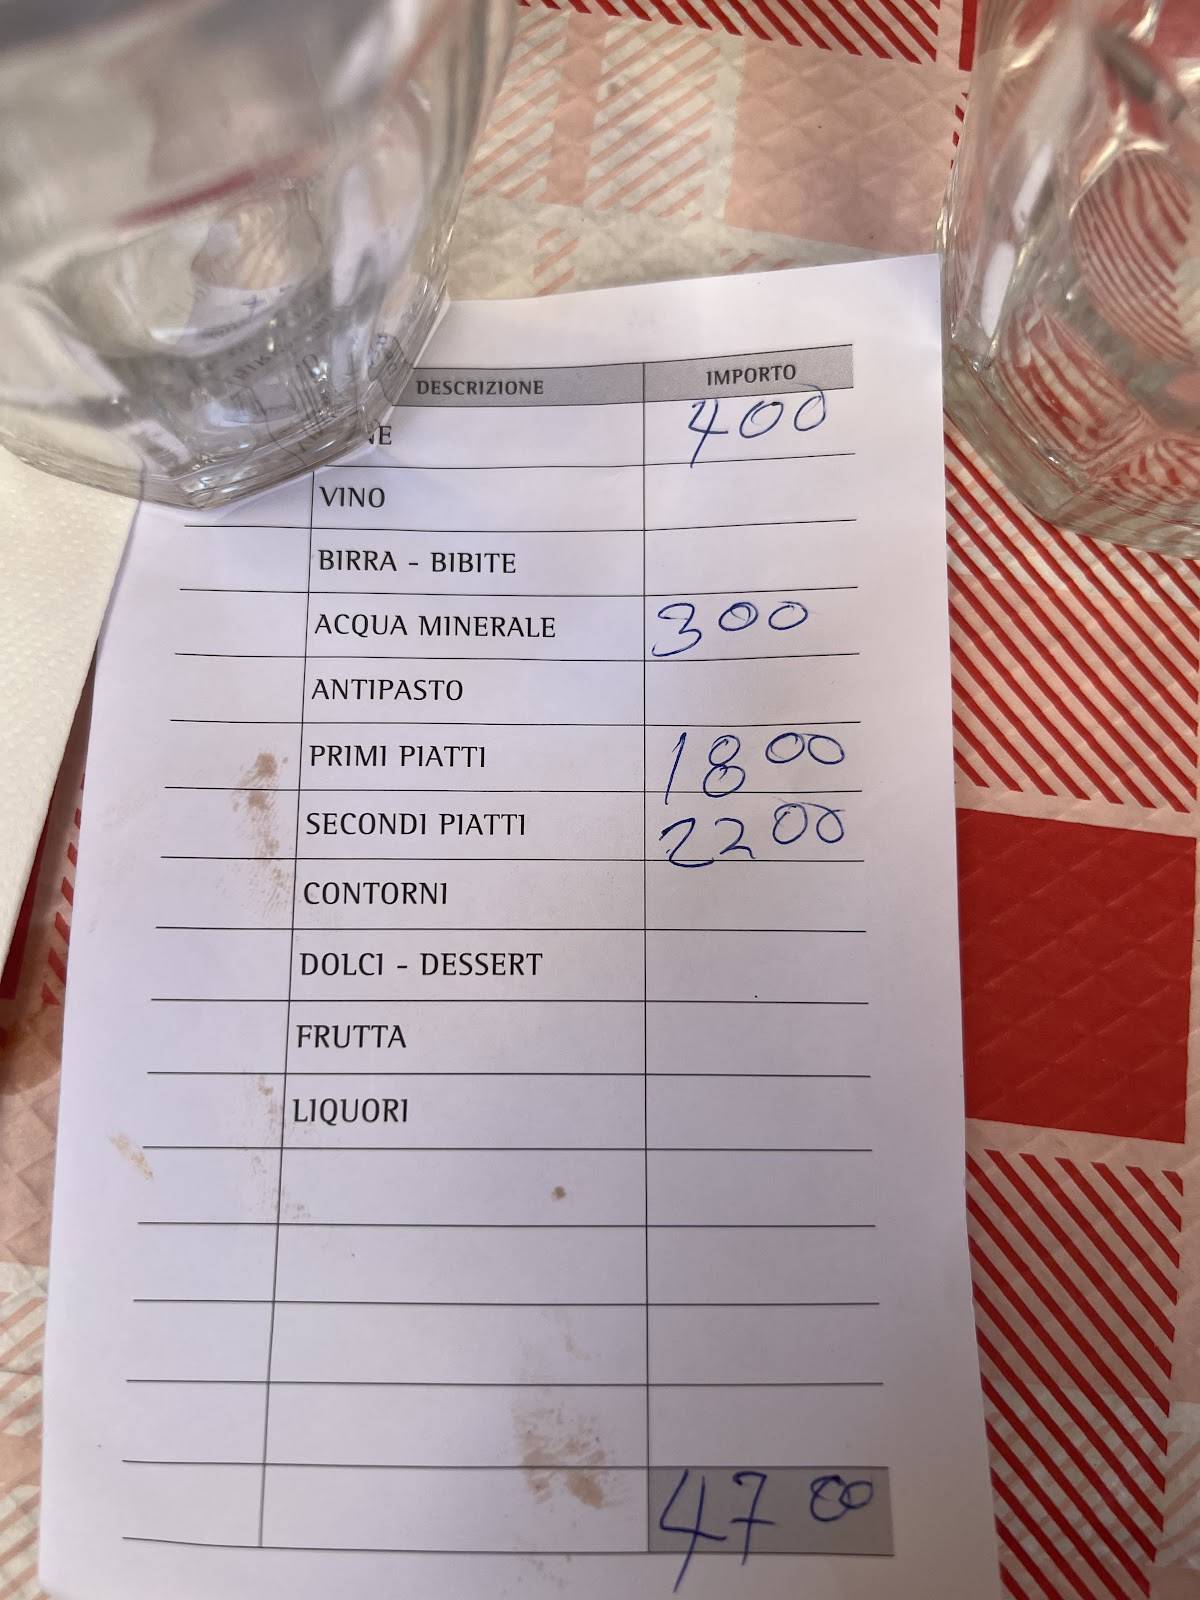 DESCRIZIONE IMPORTO
400
VINO
BIRRA - BIBITE
ACQUA MINERALE 300
ANTIPASTO
PRIMI PIATTI 18 00
SECONDI PIATTI 22 00
CONTORNI
DOLCI - DESSERT
FRUTTA
LIQUORI
47 00